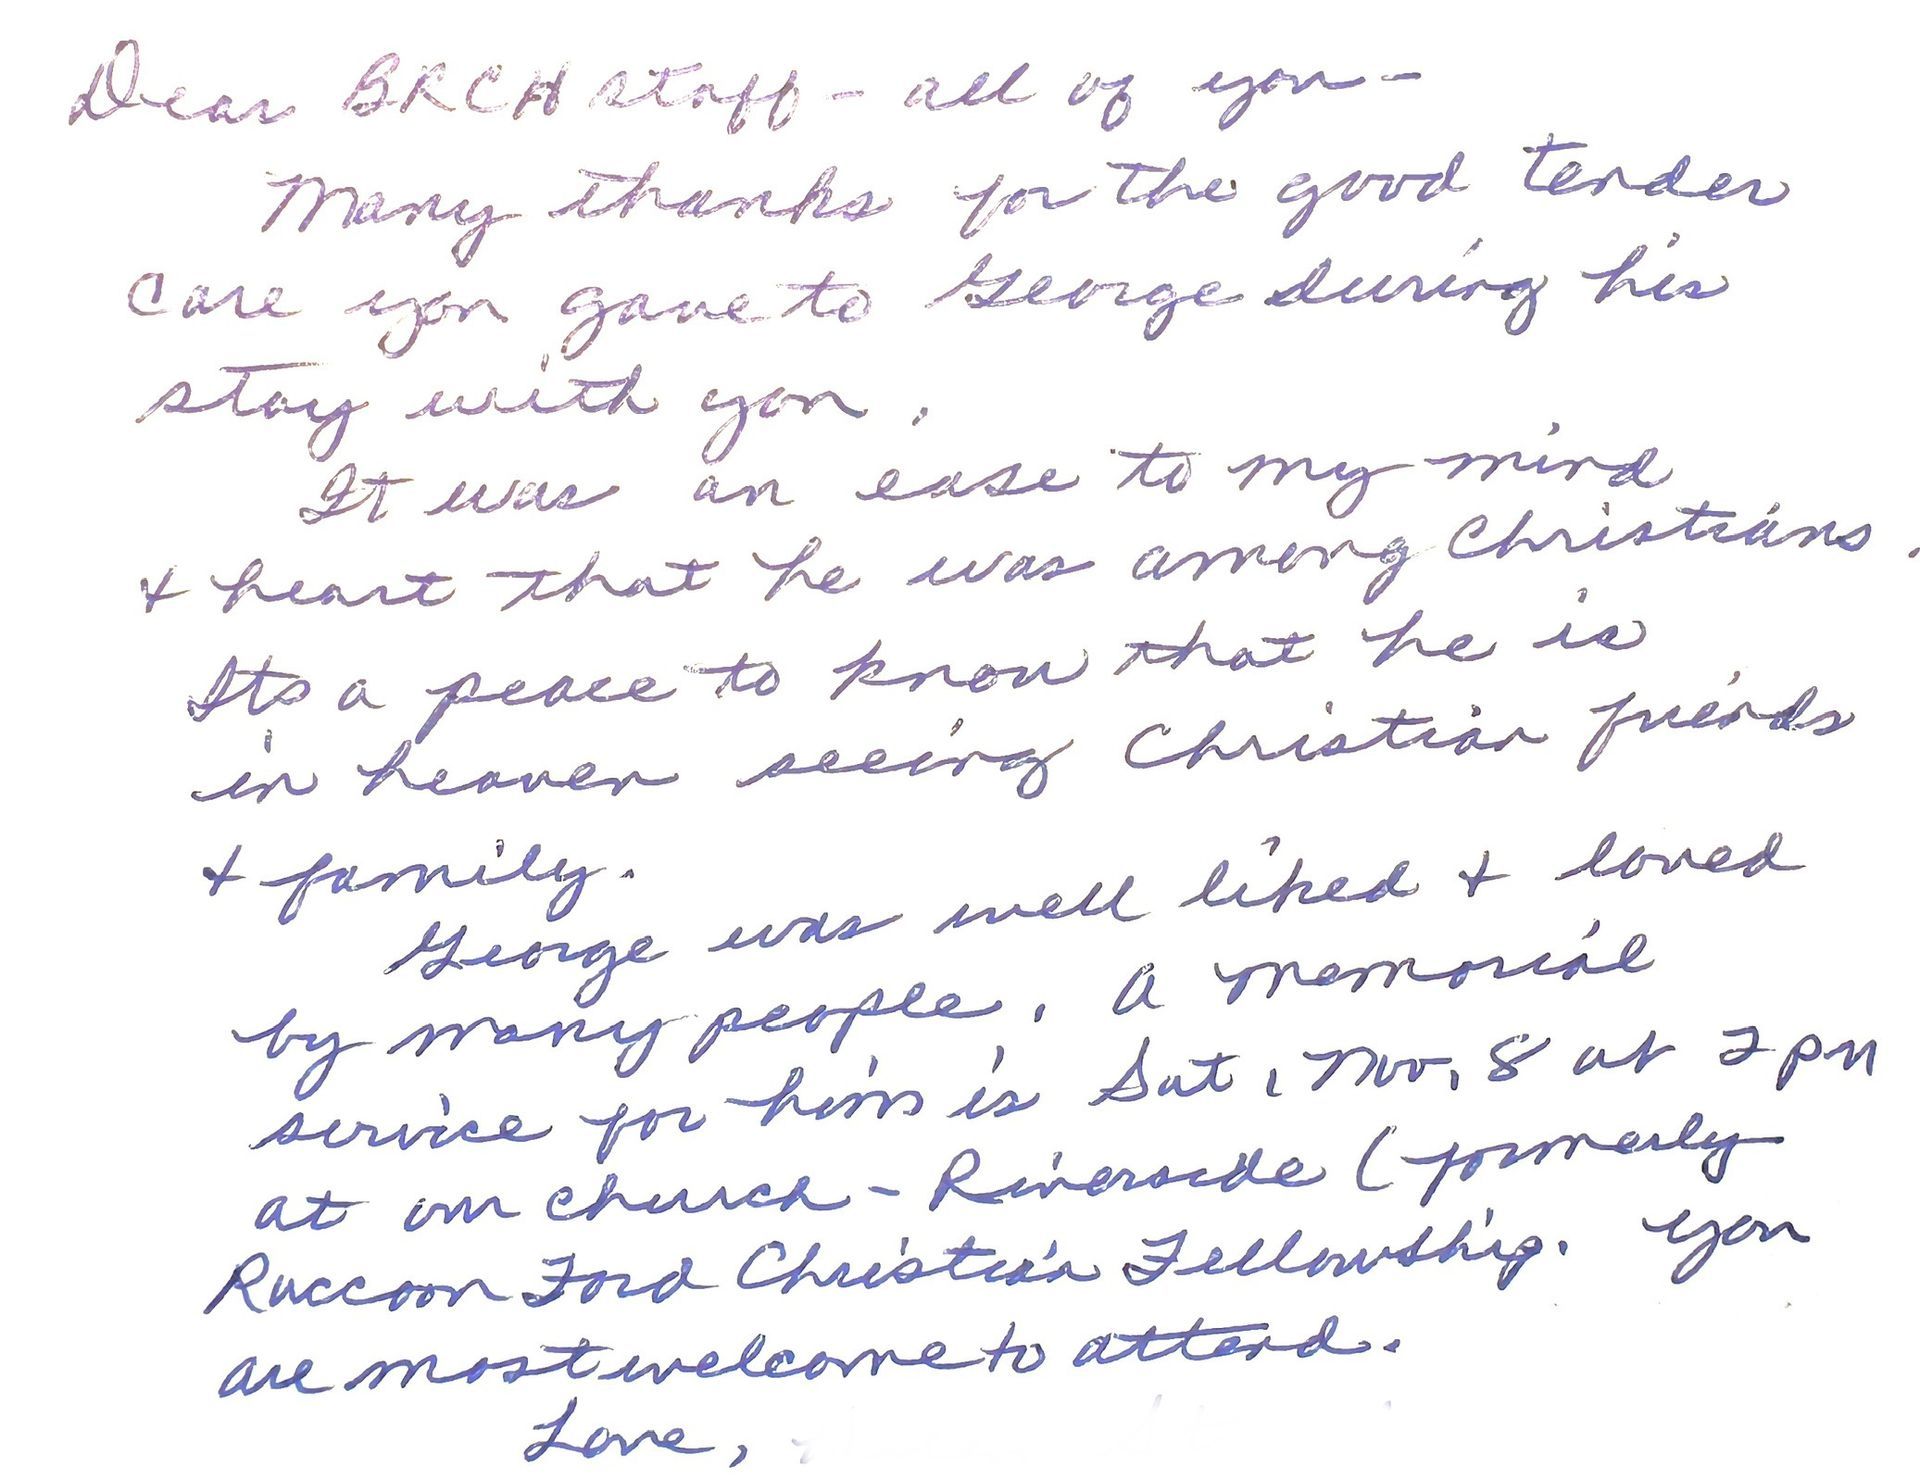 Dear BRCH staff - all of you -
Many thanks for the good tender
care you gave to George during his
stay with you.
It was an ease to my mind
+ heart that he was among Christians.
Its a peace to know that he is
in heaven seeing Christian friends
+ family.
George was well liked + loved
by many people. A memorial
service for him is Sat, Nov, 8 at 2 pm
at our church - Riverside (formerly
Raccoon Ford Christian Fellowship. You
are most welcome to attend.
Love,